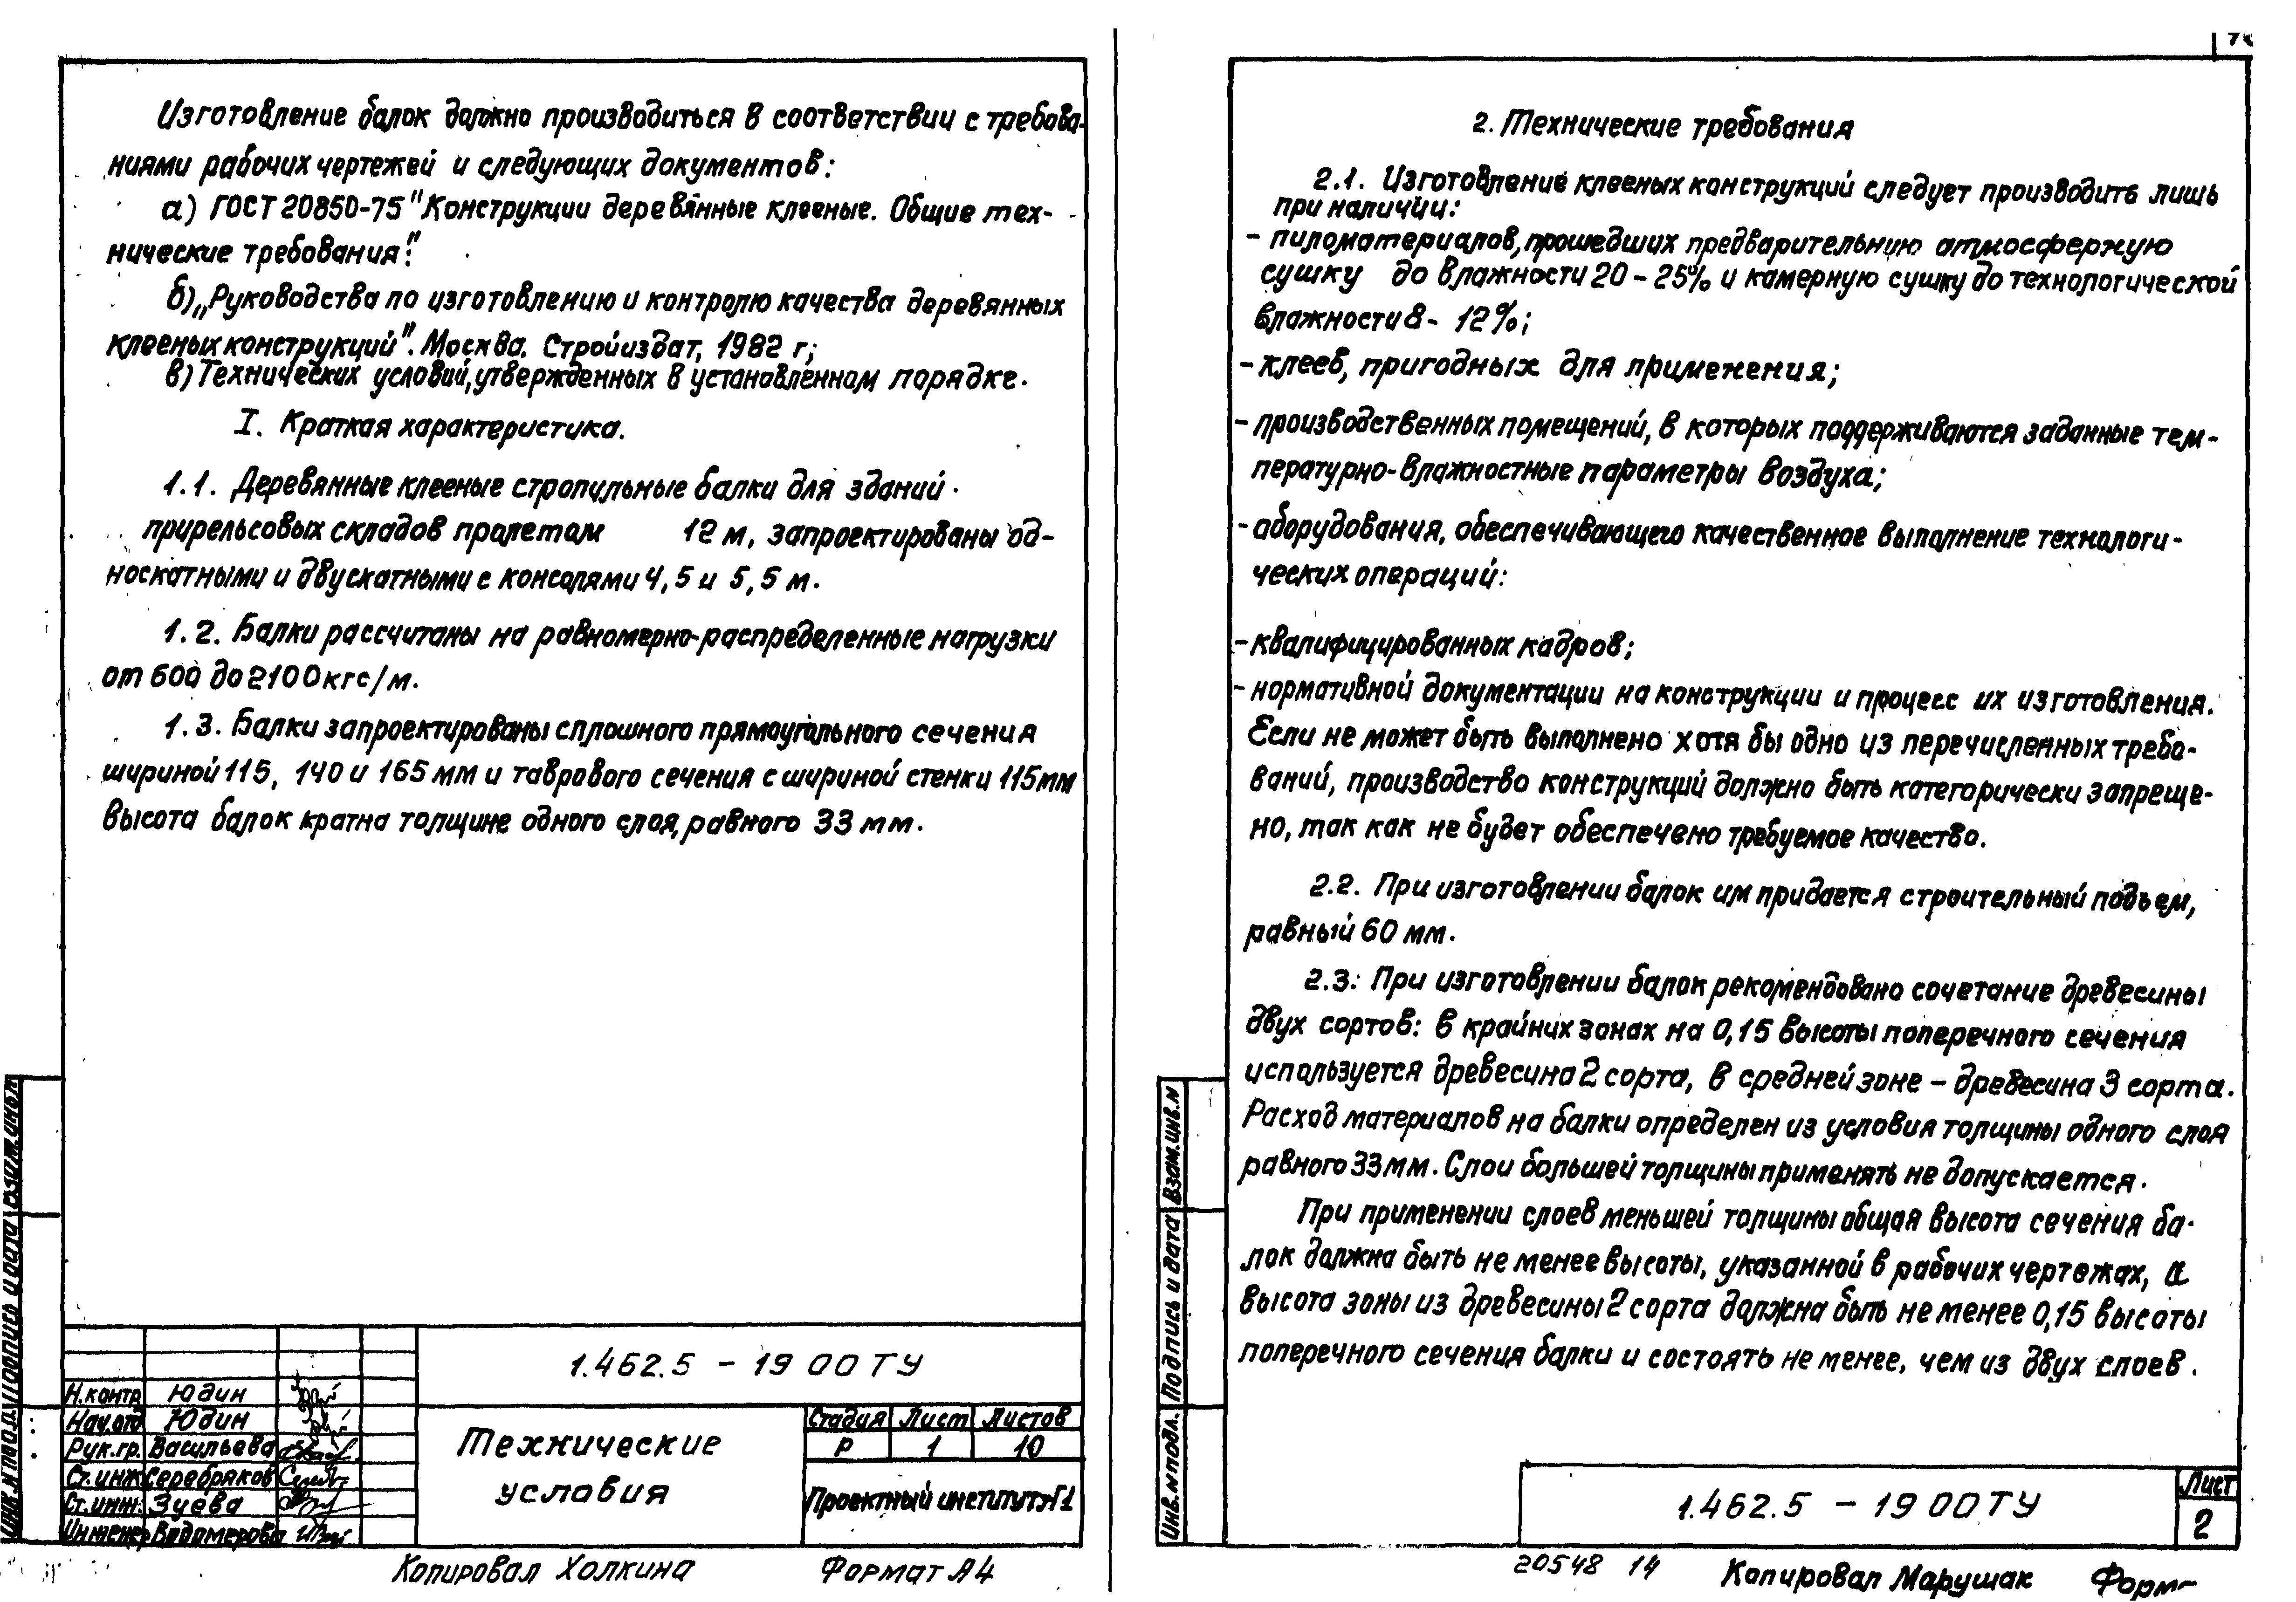 Изготовление балок должно производиться в соответствии с требова-
ниями рабочих чертежей и следующих документов:
а) ГОСТ 20850-75 "Конструкции деревянные клееные. Общие тех-
нические требования".
б) „Руководства по изготовлению и контролю качества деревянных
клееных конструкций". Москва. Стройиздат, 1982 г;
в) Технических условий, утвержденных в установленном порядке.
I. Краткая характеристика.
1.1. Деревянные клееные стропильные балки для зданий
прирельсовых складов пролетом 12 м, запроектированы од-
носкатными и двускатными с консолями 4,5 и 5,5 м.
1.2. Балки рассчитаны на равномерно-распределенные нагрузки
от 600 до 2100 кгс/м.
1.3. Балки запроектированы сплошного прямоугольного сечения
шириной 115, 140 и 165 мм и таврового сечения с шириной стенки 115мм
Высота балок кратна толщине одного слоя, равного 33 мм.
1.462.5 - 19 00 ТУ
Н.контр Юдин
Нач.отд Юдин
Рук.гр. Васильева
Ст.инж Серебряков
Ст.инж. Зуева
Инженер Водомерова
Технические
условия
Стадия Лист Листов
Р 1 10
Проектный институт №1
Копировал Холкина Формат А4
2. Технические требования
2.1. Изготовление клееных конструкций следует производить лишь
при наличии:
- пиломатериалов, прошедших предварительную атмосферную
сушку до влажности 20 - 25% и камерную сушку до технологической
влажности 8 - 12%;
- клеев, пригодных для применения;
- производственных помещений, в которых поддерживаются заданные тем-
пературно-влажностные параметры воздуха;
- оборудования, обеспечивающего качественное выполнение технологи-
ческих операций:
- квалифицированных кадров;
- нормативной документации на конструкции и процесс их изготовления.
Если не может быть выполнено хотя бы одно из перечисленных требо-
ваний, производство конструкций должно быть категорически запреще-
но, так как не будет обеспечено требуемое качество.
2.2. При изготовлении балок им придается строительный подъем,
равный 60 мм.
2.3. При изготовлении балок рекомендовано сочетание древесины
двух сортов: в крайних зонах на 0,15 высоты поперечного сечения
используется древесина 2 сорта, в средней зоне - древесина 3 сорта.
Расход материалов на балки определен из условия толщины одного слоя
равного 33 мм. Слои большей толщины применять не допускается.
При применении слоев меньшей толщины общая высота сечения ба-
лок должна быть не менее высоты, указанной в рабочих чертежах, а
высота зоны из древесины 2 сорта должна быть не менее 0,15 высоты
поперечного сечения балки и состоять не менее, чем из двух слоев.
Инв.№ подл. Подпись и дата Взам.инв.№
1.462.5 - 19 00 ТУ
Лист
2
20548 14 Копировал Марушак Форм